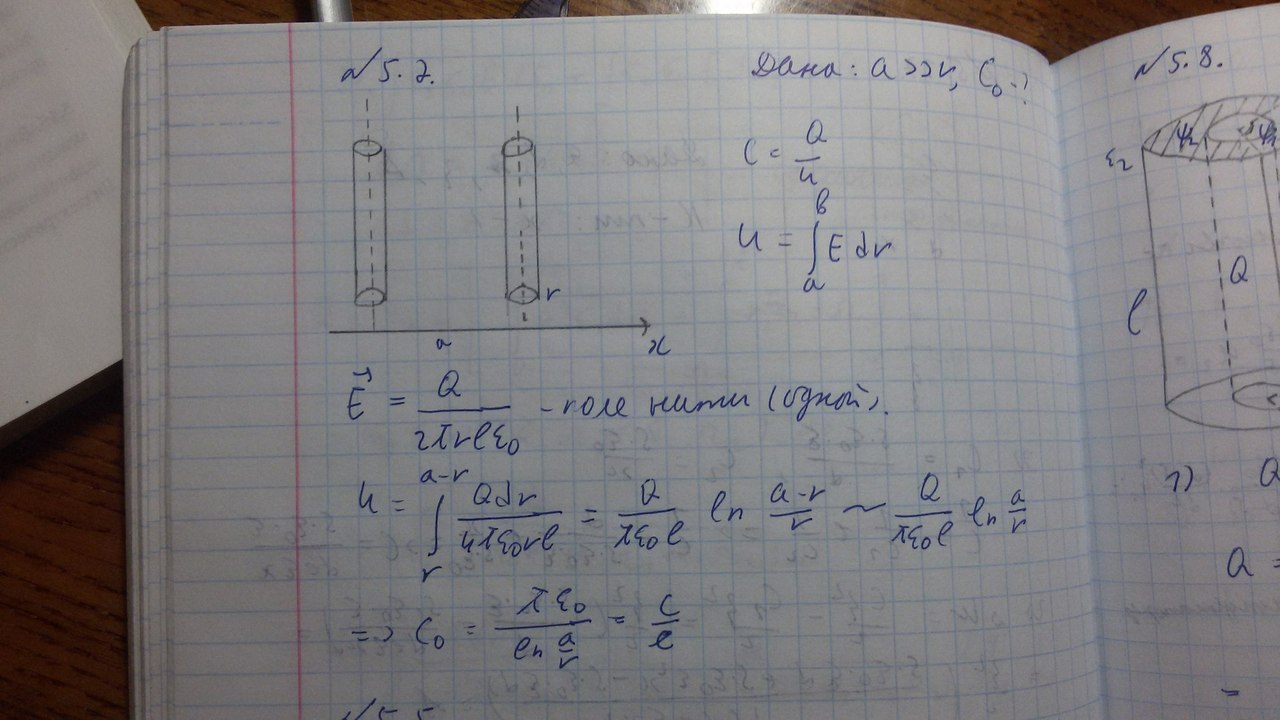 № 5.7.
Дано: a >> r, C₀ - ?
C = Q/U
U = ∫ₐᵇ E dr
r
a
x
E⃗ = Q/(2πrlε₀) - поле нити (одной).
U = ∫ᵣᵃ⁻ʳ Qdr/(4πε₀rl) = Q/(πε₀l) ln (a-r)/r ~ Q/(πε₀l) ln a/r
=> C₀ = πε₀/(ln a/r) = C/l
№ 5.8.
ε₂
Q
l
1) Q
Q =
=